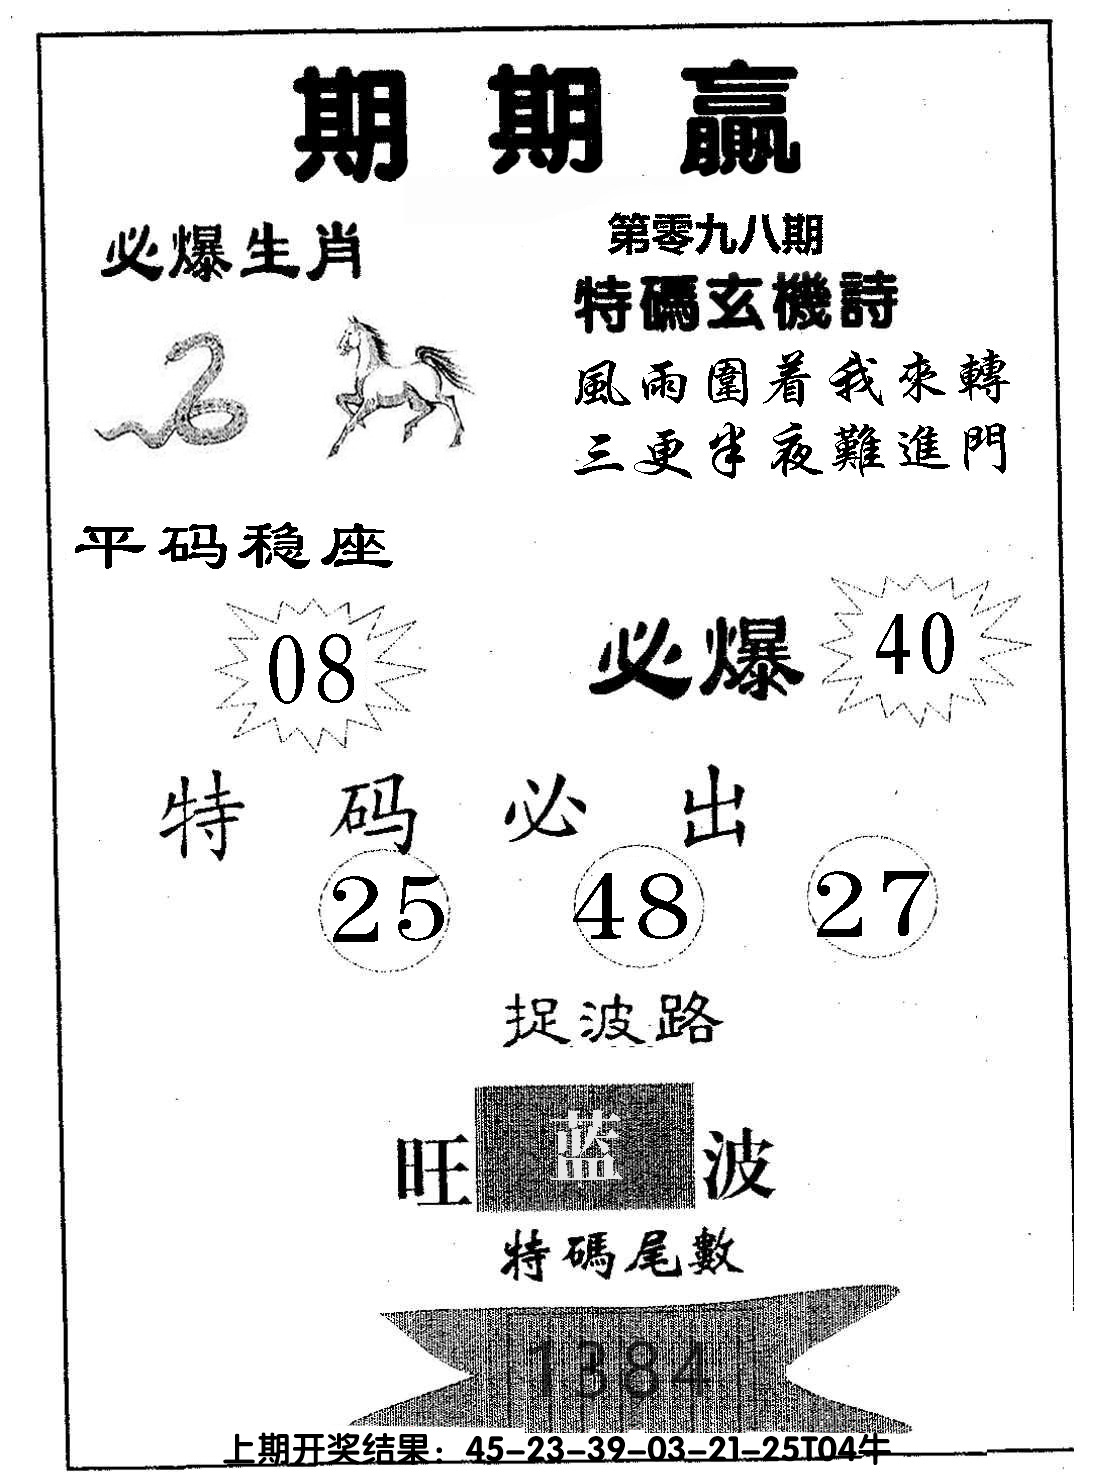 期期赢
必爆生肖
第零九八期
特碼玄機詩
風雨圍着我來轉
三更半夜難進門
平码稳座
08
必爆
40
特码必出
25 48 27
捉波路
旺蓝波
特碼尾數
1384
上期开奖结果：45-23-39-03-21-25T04牛